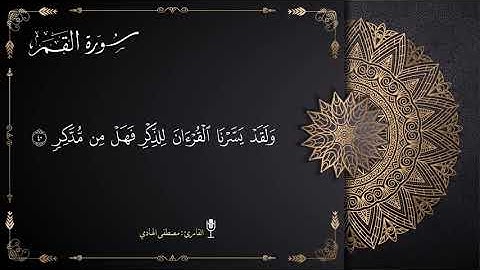 سورة القمر
وَلَقَدْ يَسَّرْنَا الْقُرْءَانَ لِلذِّكْرِ فَهَلْ مِن مُّدَّكِرٍ ٤٠
القارئ: مصطفى الهادي